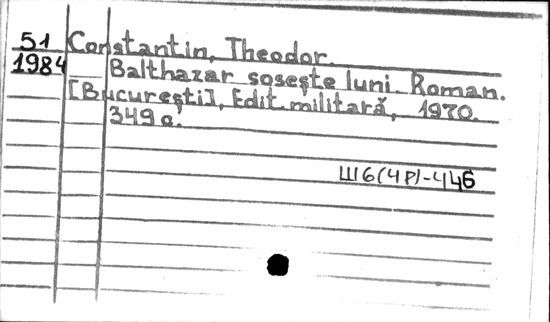 51 Constantin, Theodor.
1984 Balthazar soseşte luni. Roman.
[Bucureşti], Edit. militară, 1970.
349 a.
Ш6(4Р)-446